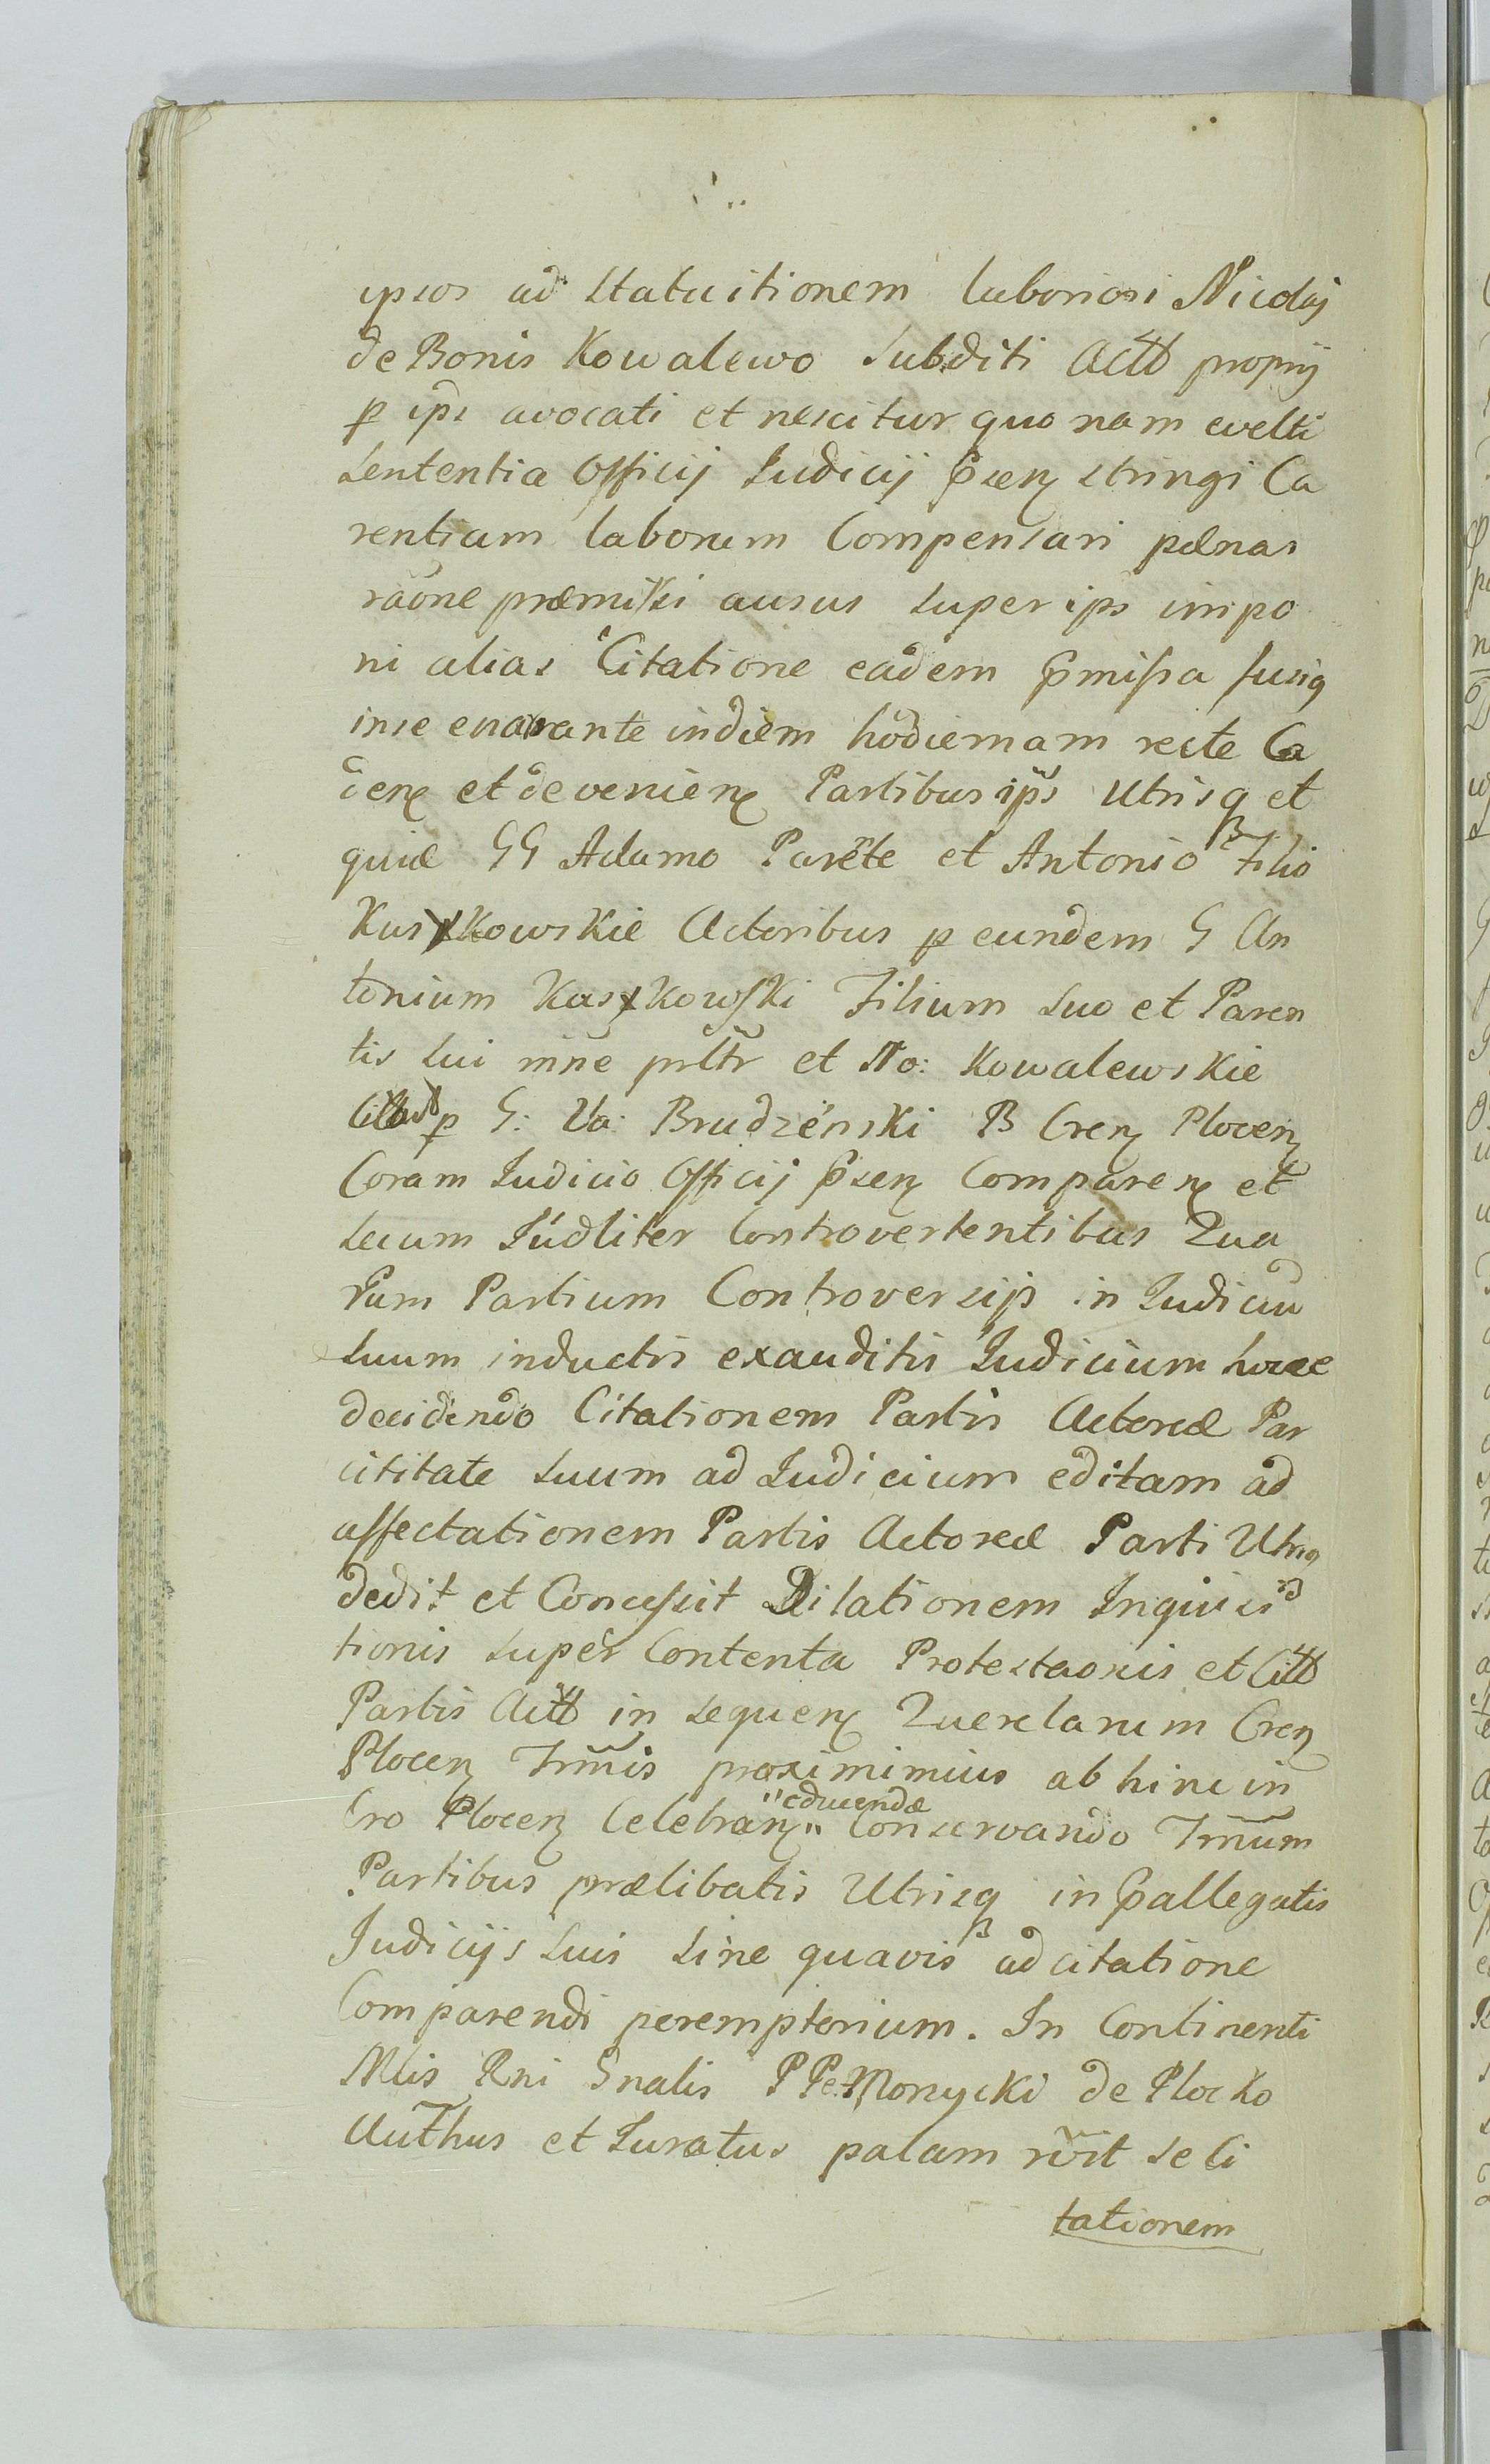 ipsos ad Statuitionem laboriosi Nicolaj
de Bonis Kowalewo Subditi Actt proprij
p ips avocati et nescitur quo nam evelti
Sententia Officij Iudicij psen stringi Ca
rentiam laborum Compensari pænas
raone præmissi ausus super ips impo
ni alias Citatione eadem pmissa fusiq
inse enarrante indiem hodiernam recte Ca
den et devenien Partibus ips Utrisq et
quidæ GG Adamo Parete et Antonio Filio
Kuskowskie Actoribus p eundem G An
tonium Kuskowski Filium Suo et Paren
tis Sui nne psltr et No: Kowalewskie
p G: Va: Brudzenski B Cren Plocen
Coram Iudicio Officij psen Comparen et
Secum Iudliter Controvertentibus Qua
rum Partium Controversijs in Iudiciu
Suum inductis exauditis Iudicium
decidendo Citationem Partis Actoreæ Par
cititate Suum ad Iudicium editam ad
affectationem Partis Actoreæ Parti Utriq
dedit et Concessit Dilationem Inquisi
tionis Super Contenta Protestaonis et Citt
Partis Actt in Sequen Querelarum Cren
Plocen Trmis proximimius ab hinc in
Cro Plocen Celebran "educendæ" Conservando Trmum
Partibus prælibatis Utrisq in pallegatis
Iudicijs Suis Sine quavis adcitatione
Comparendi peremptorium. In Continenti
Mlis Rni Gnalis P Pet Monycki de Plocko
Authus et Iuratus palam rvit se Ci
tationem